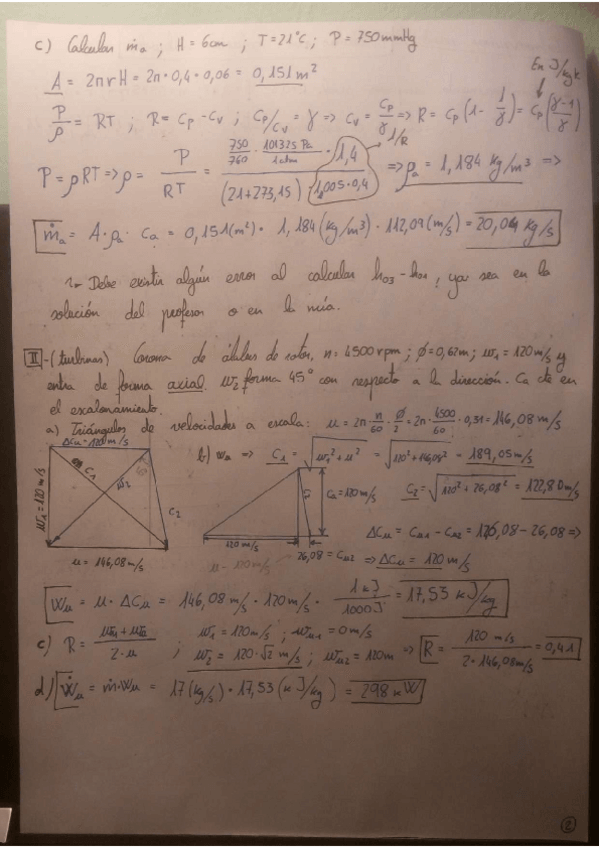 c) Calcular ṁa ; H = 6cm ; T = 21°C ; P = 750 mmHg
En J/kg K
A = 2πrH = 2π · 0,4 · 0,06 = 0,151 m²
P/ρ = RT ; R = Cp - Cv ; Cp/Cv = γ => Cv = Cp/γ => R = Cp (1 - 1/γ) = Cp (γ-1/γ)
1/R
P = ρRT => ρ = P/RT = 750/760 · 101325 Pa/1 atm · 1,4 / (21+273,15) 1,005·0,4 => ρa = 1,184 kg/m³ =>
ṁa = A · ρa · Ca = 0,151 (m²) · 1,184 (kg/m³) · 112,09 (m/s) = 20,04 kg/s
Debe existir algún error al calcular h03 - h01, ya sea en la
solución del profesor o en la mía.
II -(turbinas) Corona de álabes de rotor, n = 4500 rpm ; ϕ = 0,62m ; w1 = 120 m/s y
entra de forma axial. w2 forma 45° con respecto a la dirección. Ca cte en
el escalonamiento.
a) Triángulos de velocidades a escala: u = 2π · n/60 · ϕ/2 = 2π · 4500/60 · 0,31 = 146,08 m/s
ΔCu = 120 m/s
b) wa => C1 = √w1² + u² = √120² + 146,08² = 189,05 m/s
w1 = 120 m/s
C1
45
w2
C2
C2
Ca = 120 m/s
C2 = √120² + 26,08² = 122,80 m/s
ΔCu = Cu1 - Cu2 = 146,08 - 26,08 =>
120 m/s
u = 146,08 m/s
26,08 = Cu2 => ΔCu = 120 m/s
Wu = u · ΔCu = 146,08 m/s · 120 m/s · 1 kJ/1000J = 17,53 kJ/kg
c) R = wu1 + wu2 / 2·u ; w1 = 120 m/s ; wu1 = 0 m/s
w2 = 120·√2 m/s ; wu2 = 120m => R = 120 m/s / 2·146,08 m/s = 0,41
d) Ẇu = ṁ·Wu = 17 (kg/s) · 17,53 (kJ/kg) = 298 kW
2